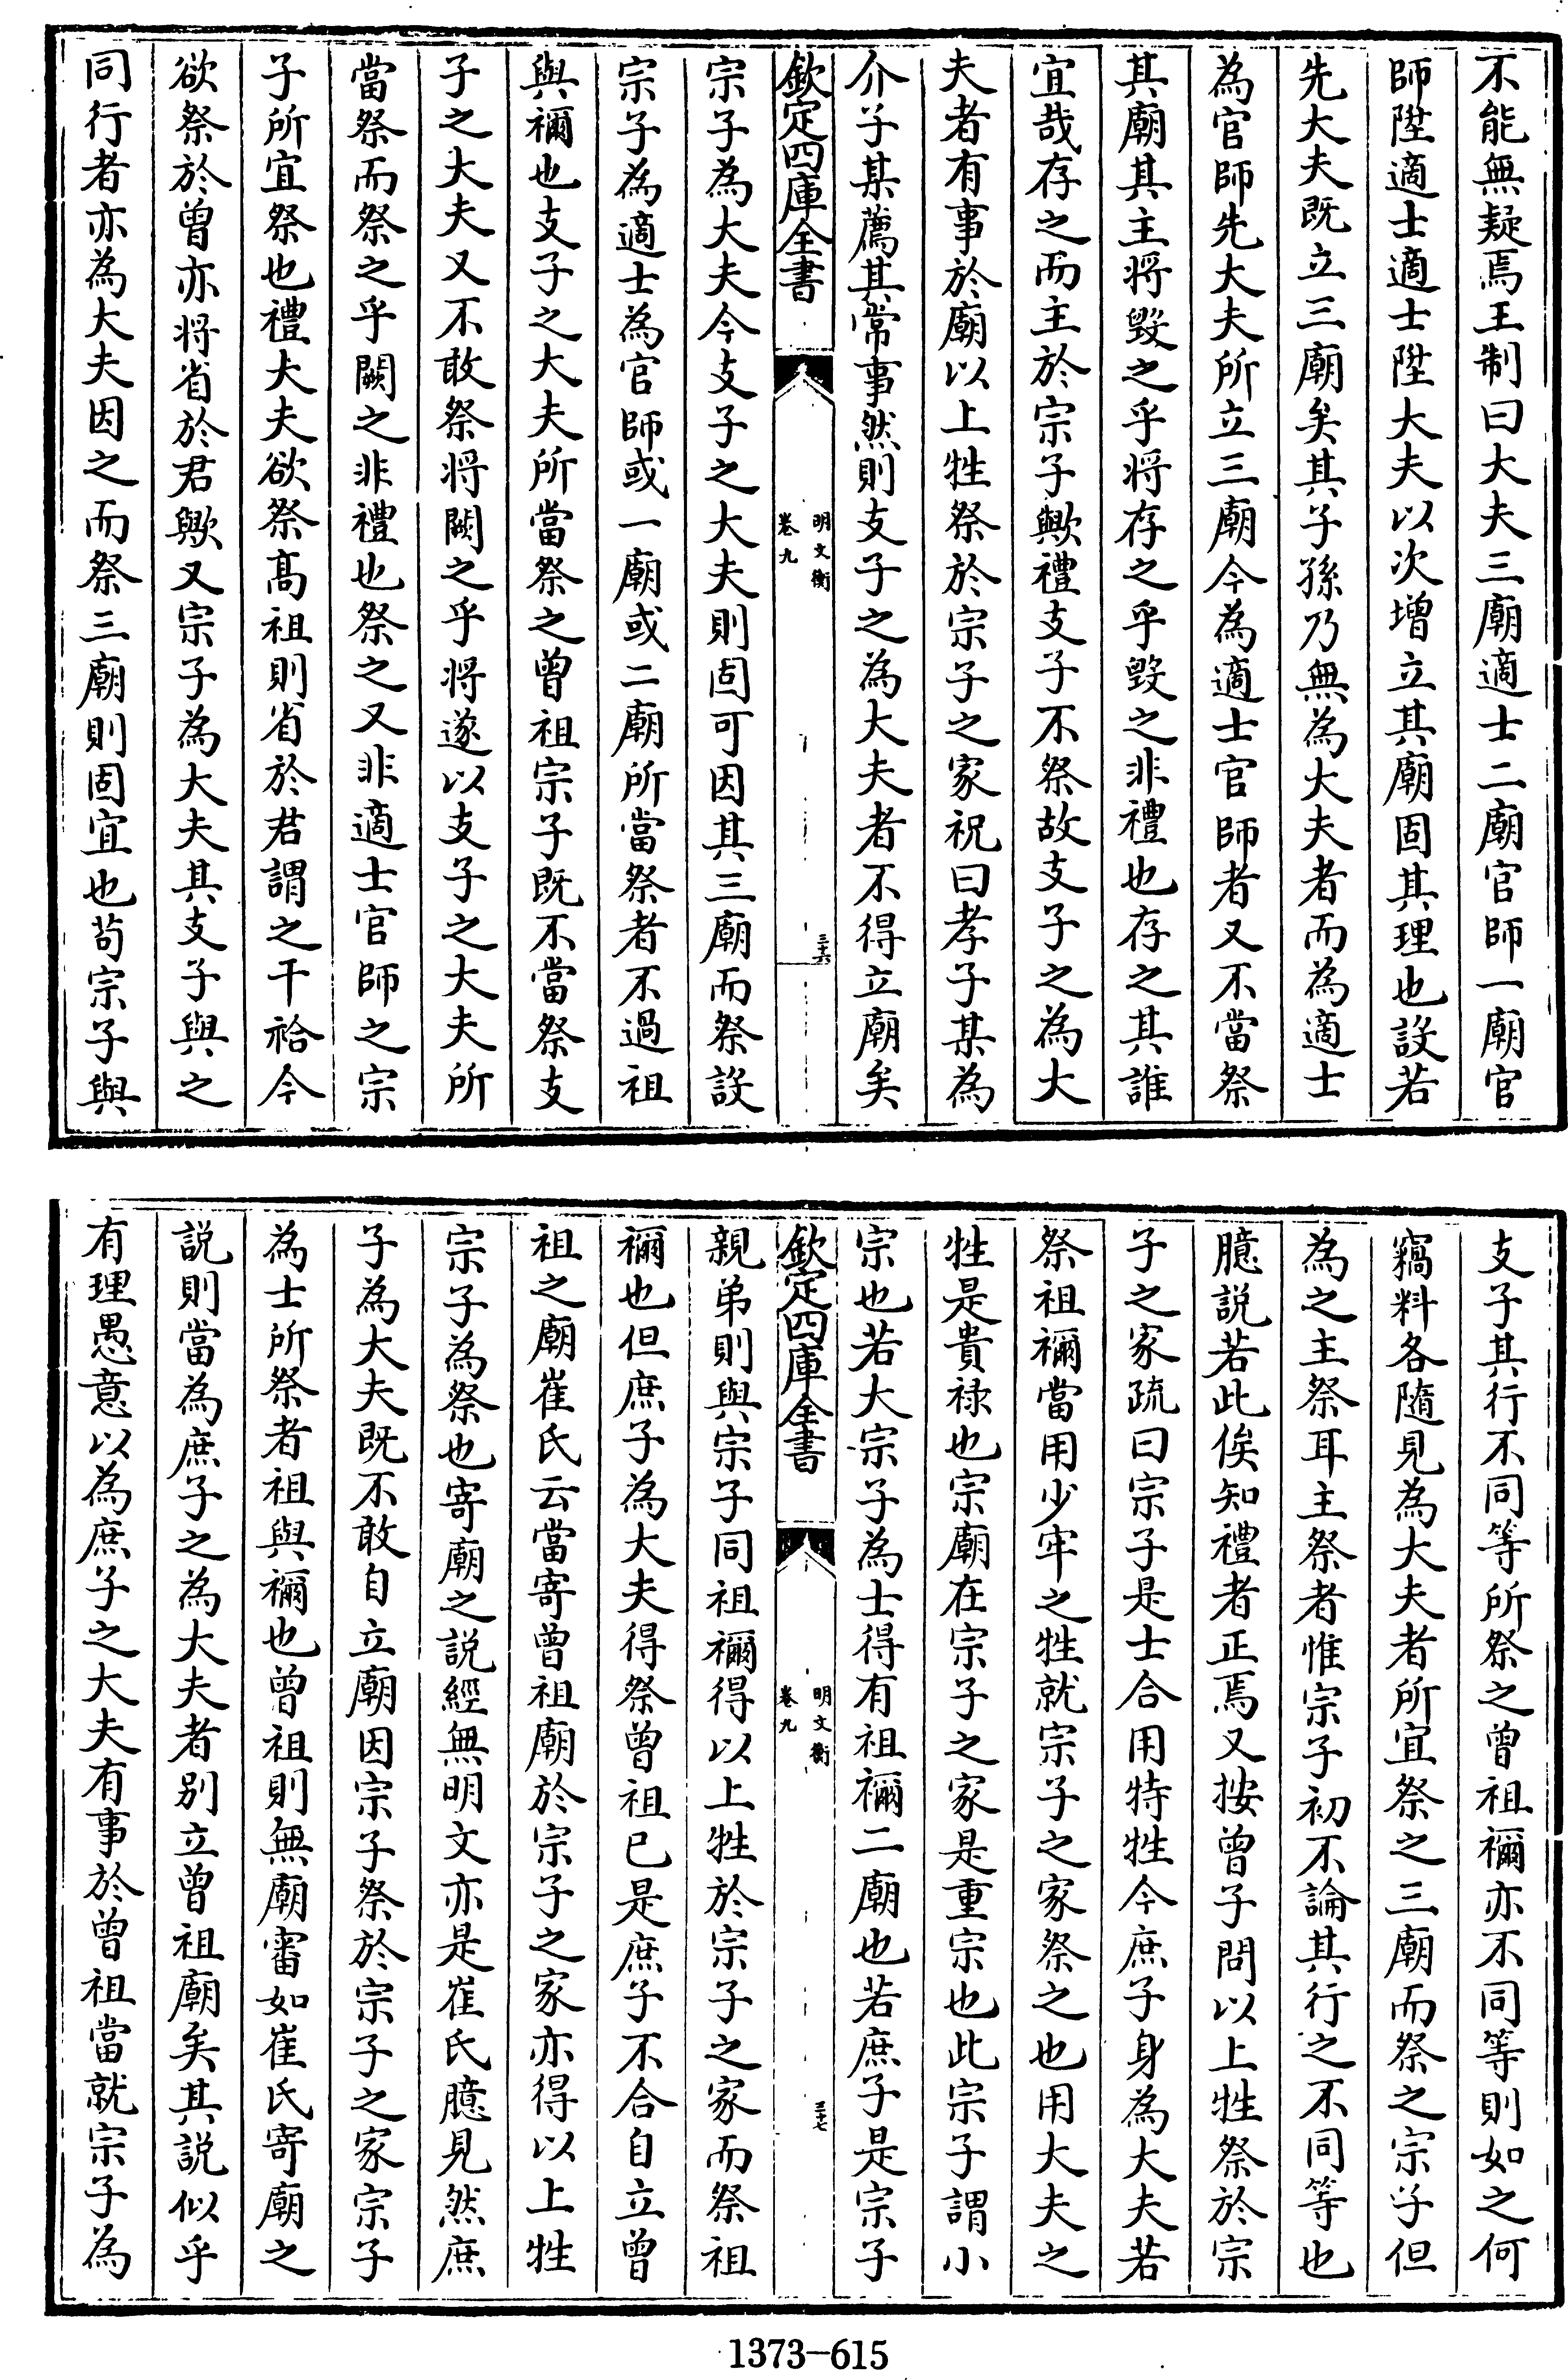 不能無疑焉王制曰大夫三廟適士二廟官師一廟官
師陞適士適士陞大夫以次增立其廟固其理也設若
先大夫既立三廟矣其子孫乃無為大夫者而為適士
為官師先大夫所立三廟今為適士官師者又不當祭
其廟其主將毀之乎將存之乎毀之非禮也存之其誰
宜哉存之而主於宗子歟禮支子不祭故支子之為大
夫者有事於廟以上牲祭於宗子之家祝曰孝子某為
介子某薦其常事然則支子之為大夫者不得立廟矣
欽定四庫全書
明文衡
卷九
三十六
宗子為大夫今支子之大夫則固可因其三廟而祭設
宗子為適士為官師或一廟或二廟所當祭者不過祖
與禰也支子之大夫所當祭之曾祖宗子既不當祭支
子之大夫又不敢祭將闕之乎將遂以支子之大夫所
當祭而祭之乎闕之非禮也祭之又非適士官師之宗
子所宜祭也禮大夫欲祭高祖則省於君謂之干祫今
欲祭於曾亦將省於君歟又宗子為大夫其支子與之
同行者亦為大夫因之而祭三廟則固宜也茍宗子與
支子其行不同等所祭之曾祖禰亦不同等則如之何
竊料各隨見為大夫者所宜祭之三廟而祭之宗子但
為之主祭耳主祭者惟宗子初不論其行之不同等也
臆説若此俟知禮者正焉又按曾子問以上牲祭於宗
子之家疏曰宗子是士合用特牲今庶子身為大夫若
祭祖禰當用少牢之牲就宗子之家祭之也用大夫之
牲是貴祿也宗廟在宗子之家是重宗也此宗子謂小
宗也若大宗子為士得有祖禰二廟也若庶子是宗子
欽定四庫全書
明文衡
卷九
三十七
親弟則與宗子同祖禰得以上牲於宗子之家而祭祖
禰也但庶子為大夫得祭曾祖已是庶子不合自立曾
祖之廟崔氏云當寄曾祖廟於宗子之家亦得以上牲
宗子為祭也寄廟之説經無明文亦是崔氏臆見然庶
子為大夫既不敢自立廟因宗子祭於宗子之家宗子
為士所祭者祖與禰也曾祖則無廟審如崔氏寄廟之
説則當為庶子之為大夫者别立曾祖廟矣其説似乎
有理愚意以為庶子之大夫有事於曾祖當就宗子為
1373-615